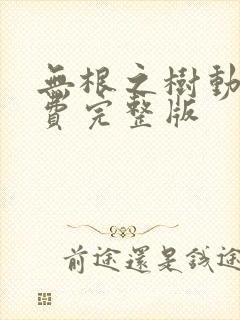 無根之樹動
費完整版
前途還是錢途